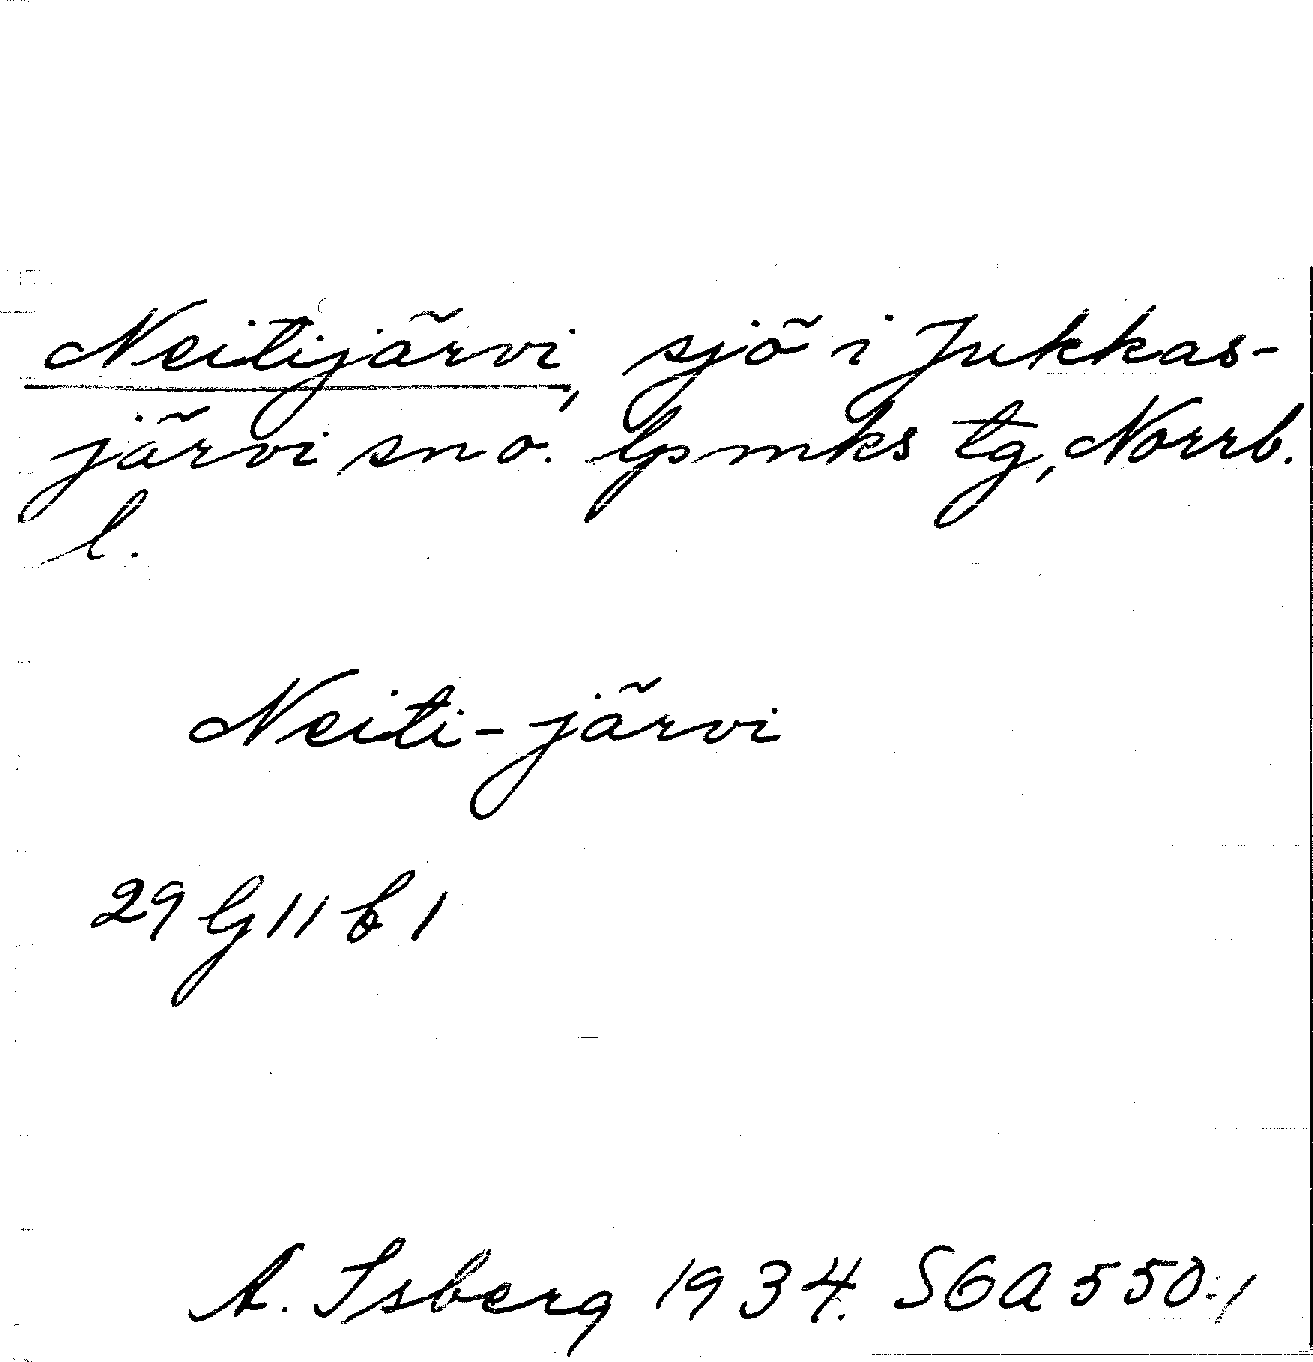 Neitijärvi, sjö i Jukkas-
järvi sn o. lpmks tg, Norrb.
l.
Neiti-järvi
29 G 11 f 1
A. Isberg 1934. SGA 550:1